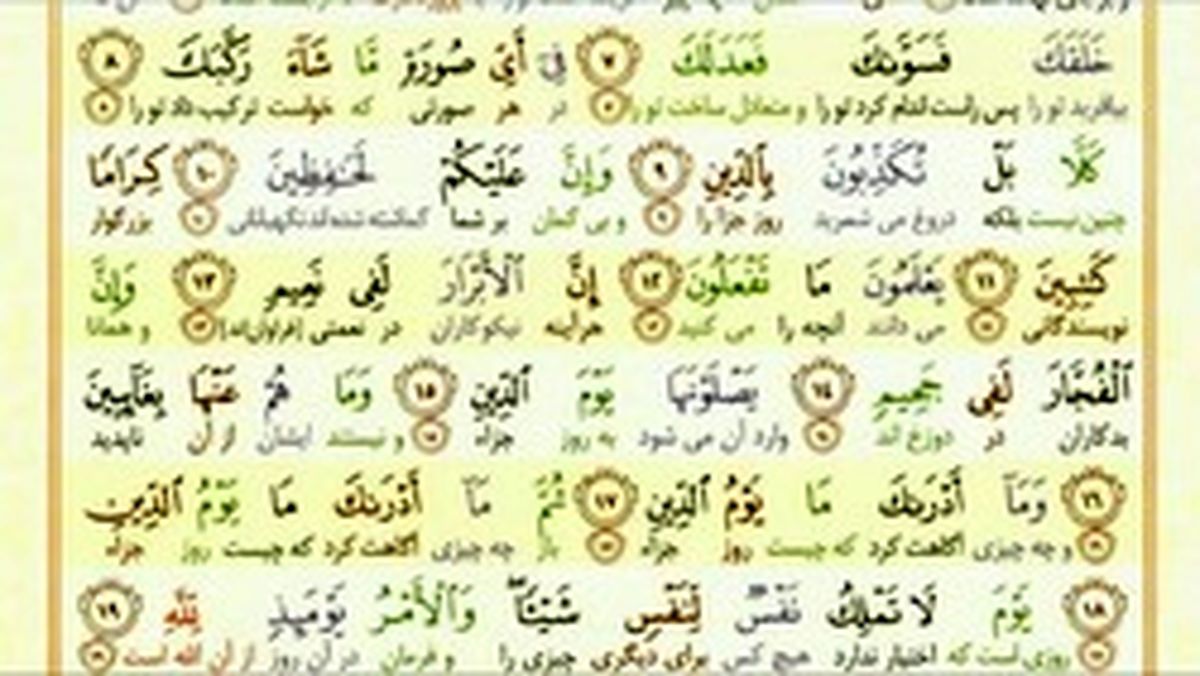 خَلَقَكَ فَسَوَّىٰكَ فَعَدَلَكَ ٧ فِىٓ أَىِّ صُورَةٍ مَّا شَآءَ رَكَّبَكَ ٨
بیافرید تو را پس راست اندام کرد تو را و متعادل ساخت تو را ٧ در هر صورتی که خواست ترکیب داد تو را ٨
كَلَّا بَلْ تُكَذِّبُونَ بِٱلدِّينِ ٩ وَإِنَّ عَلَيْكُمْ لَحَـٰفِظِينَ ١٠ كِرَامًا
چنین نیست بلکه دروغ می شمرید روز جزا را ٩ و بی گمان بر شما گماشته شده اند نگهبانانی ١٠ بزرگوار
كَـٰتِبِينَ ١١ يَعْلَمُونَ مَا تَفْعَلُونَ ١٢ إِنَّ ٱلْأَبْرَارَ لَفِى نَعِيمٍ ١٣ وَإِنَّ
نویسندگانی ١١ می دانند آنچه را می کنید ١٢ هرآینه نیکوکاران در نعمتی [فراوان‌اند] ١٣ و همانا
ٱلْفُجَّارَ لَفِى جَحِيمٍ ١٤ يَصْلَوْنَهَا يَوْمَ ٱلدِّينِ ١٥ وَمَا هُمْ عَنْهَا بِغَآئِبِينَ
بدکاران در دوزخ اند ١٤ وارد آن می شود به روز جزاء ١٥ و نیستند ایشان از آن ناپدید
١٦ وَمَآ أَدْرَىٰكَ مَا يَوْمُ ٱلدِّينِ ١٧ ثُمَّ مَآ أَدْرَىٰكَ مَا يَوْمُ ٱلدِّينِ
١٦ و چه چیزی آگاهت کرد که چیست روز جزاء ١٧ باز چه چیزی آگاهت کرد که چیست روز جزاء
١٨ يَوْمَ لَا تَمْلِكُ نَفْسٌ لِّنَفْسٍ شَيْـًٔا ۖ وَٱلْأَمْرُ يَوْمَئِذٍ لِّلَّهِ ١٩
١٨ روزی است که اختیار ندارد هیچ کس برای دیگری چیزی را و فرمان در آن روز از آن الله است ١٩